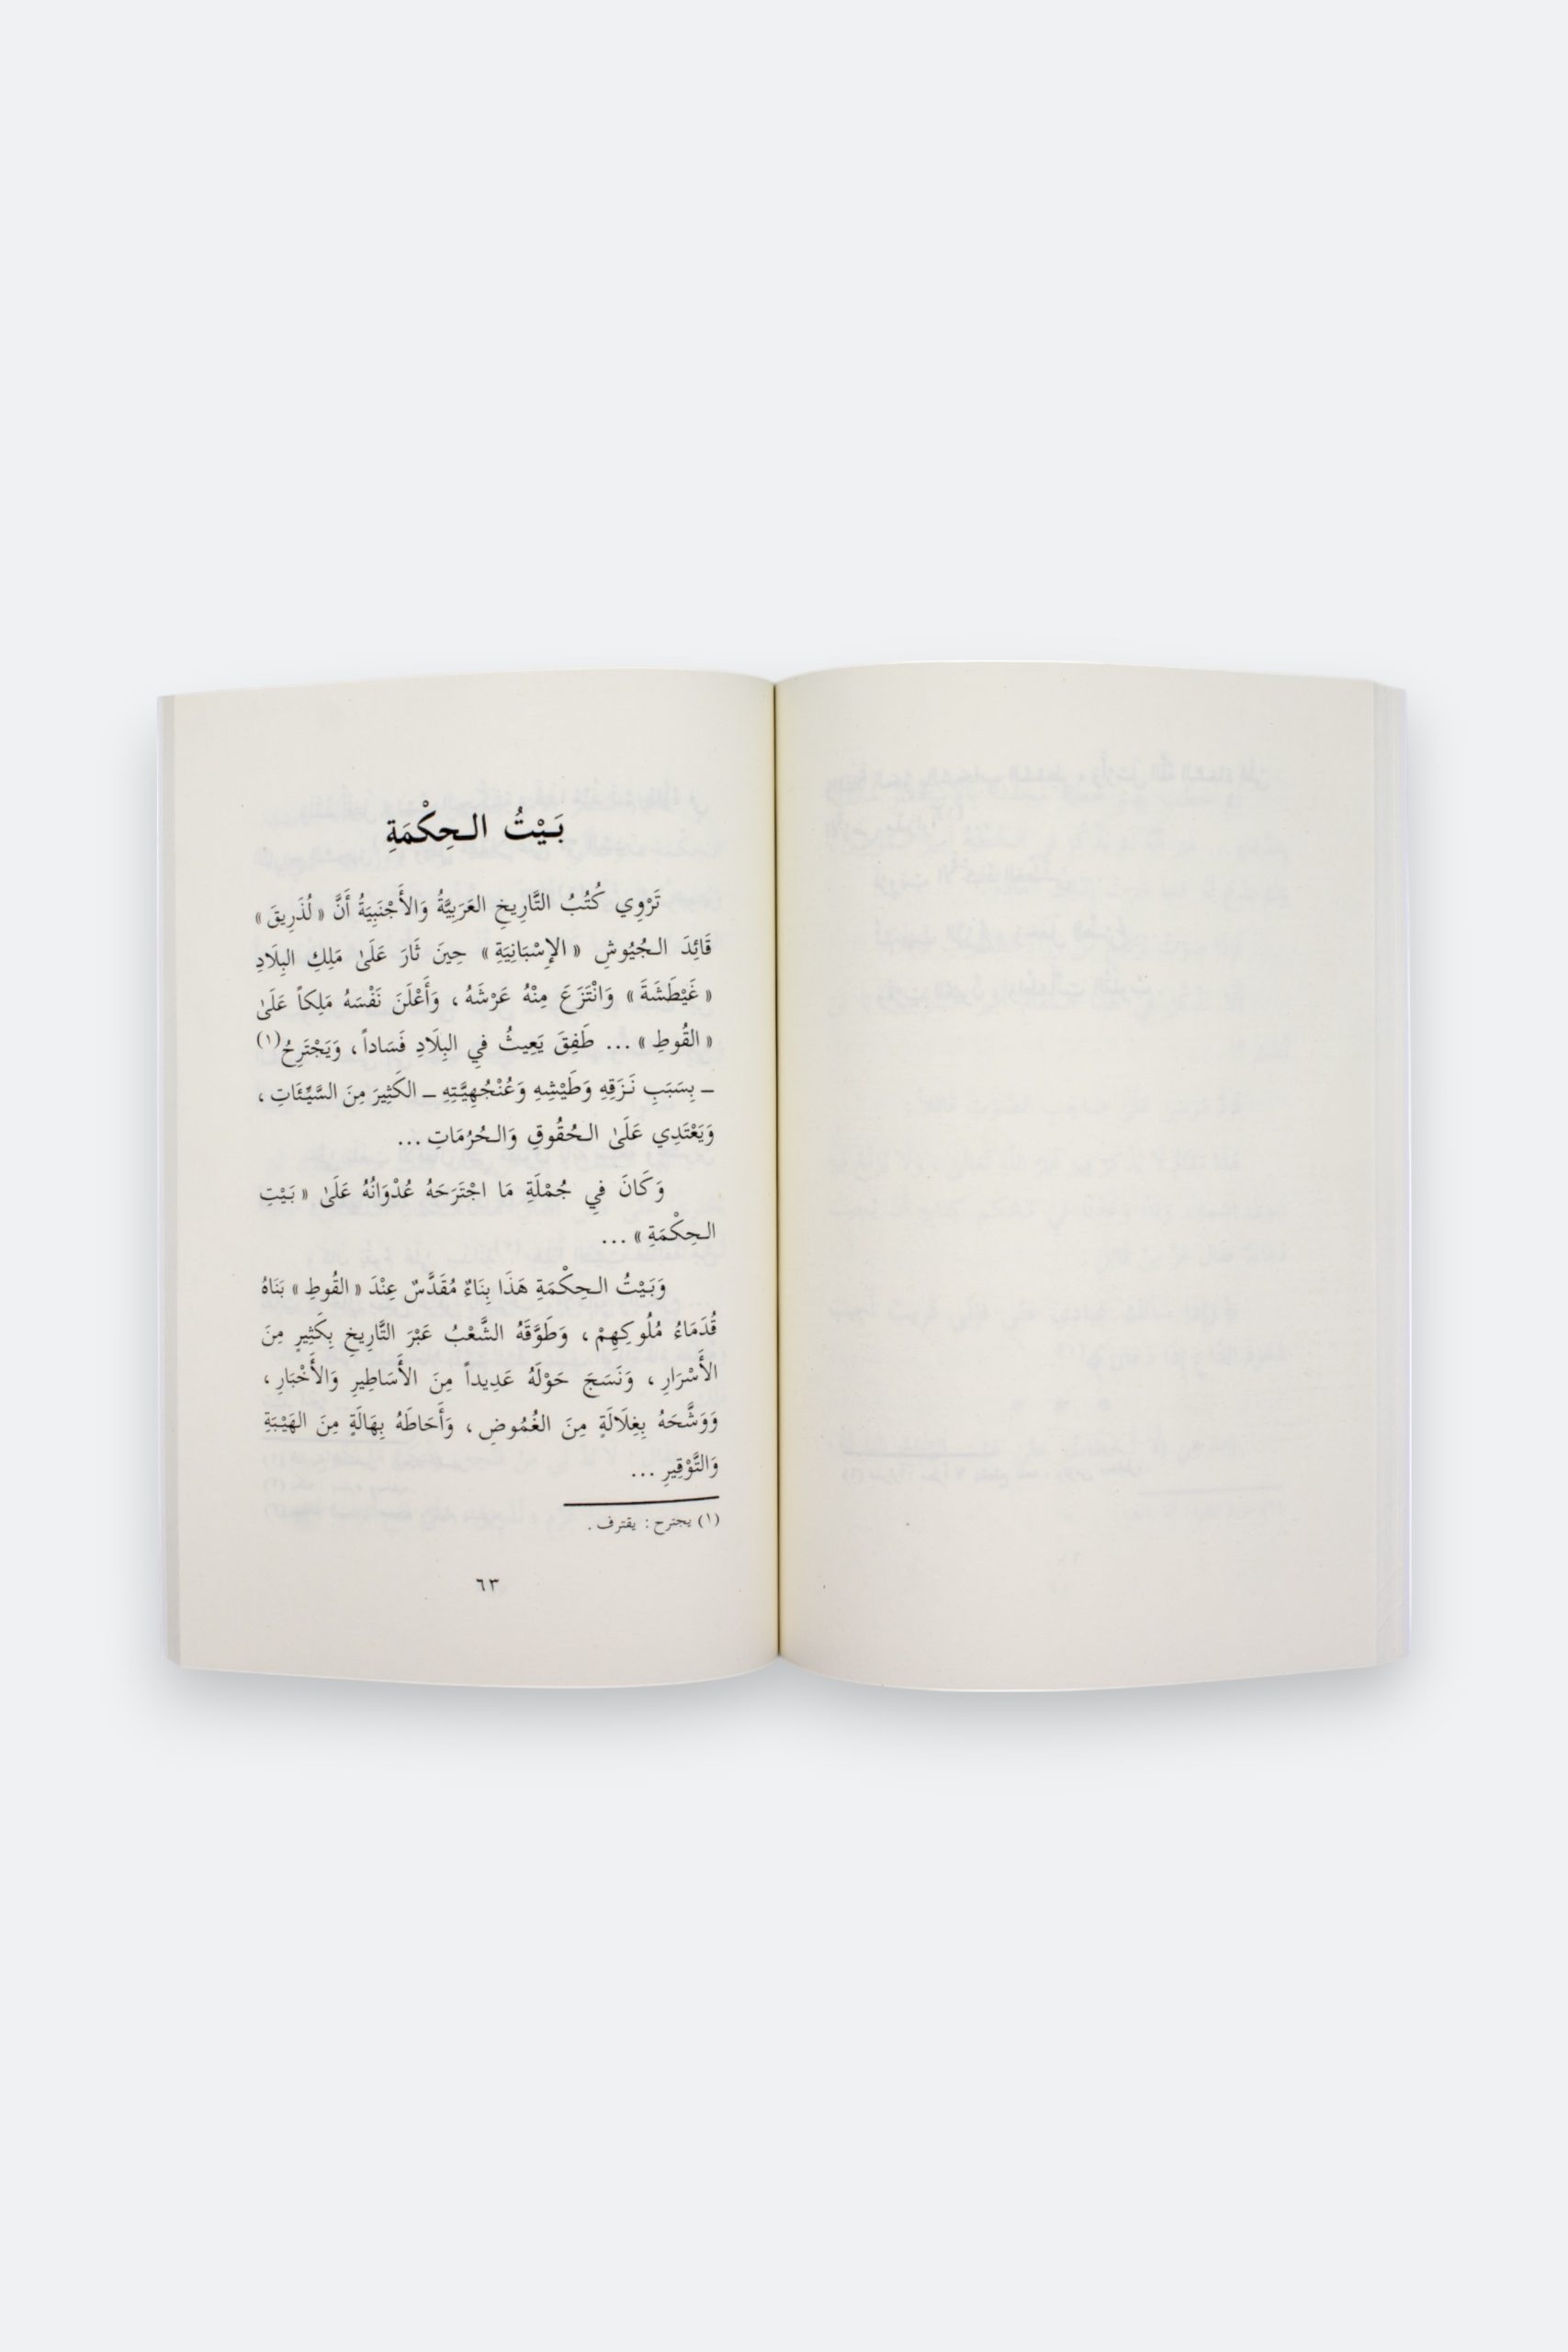 بَيْتُ الـحِكْمَةِ
تَرْوِي كُتُبُ التَّارِيخِ العَرَبِيَّةُ وَالأَجْنَبِيَةُ أَنَّ « لُذَرِيقَ »
قَائِدَ الـجُيُوشِ « الإِسْبَانِيَةِ » حِينَ ثَارَ عَلَىٰ مَلِكِ البِلَادِ
« غَيْطَشَةَ » وَانْتَزَعَ مِنْهُ عَرْشَهُ ، وَأَعْلَنَ نَفْسَهُ مَلِكاً عَلَىٰ
« القُوطِ » ... طَفِقَ يَعِيثُ فِي البِلَادِ فَسَاداً ، وَيَجْتَرِحُ(١)
ـ بِسَبَبِ نَزَقِهِ وَطَيْشِهِ وَعُنْجُهِيَّتِهِ ـ الكَثِيرَ مِنَ السَّيِّئَاتِ ،
وَيَعْتَدِي عَلَىٰ الـحُقُوقِ وَالـحُرُمَاتِ ...
وَكَانَ فِي جُمْلَةِ مَا اجْتَرَحَهُ عُدْوَانُهُ عَلَىٰ « بَيْتِ
الـحِكْمَةِ » ...
وَبَيْتُ الـحِكْمَةِ هَذَا بِنَاءٌ مُقَدَّسٌ عِنْدَ « القُوطِ » بَنَاهُ
قُدَمَاءُ مُلُوكِهِمْ ، وَطَوَّقَهُ الشَّعْبُ عَبْرَ التَّارِيخِ بِكَثِيرٍ مِنَ
الأَسْرَارِ ، وَنَسَجَ حَوْلَهُ عَدِيداً مِنَ الأَسَاطِيرِ وَالأَخْبَارِ ،
وَوَشَّحَهُ بِغِلَالَةٍ مِنَ الغُمُوضِ ، وَأَحَاطَهُ بِهَالَةٍ مِنَ الهَيْبَةِ
وَالتَّوْقِيرِ ...
(١) يجترح : يقترف .
٦٣